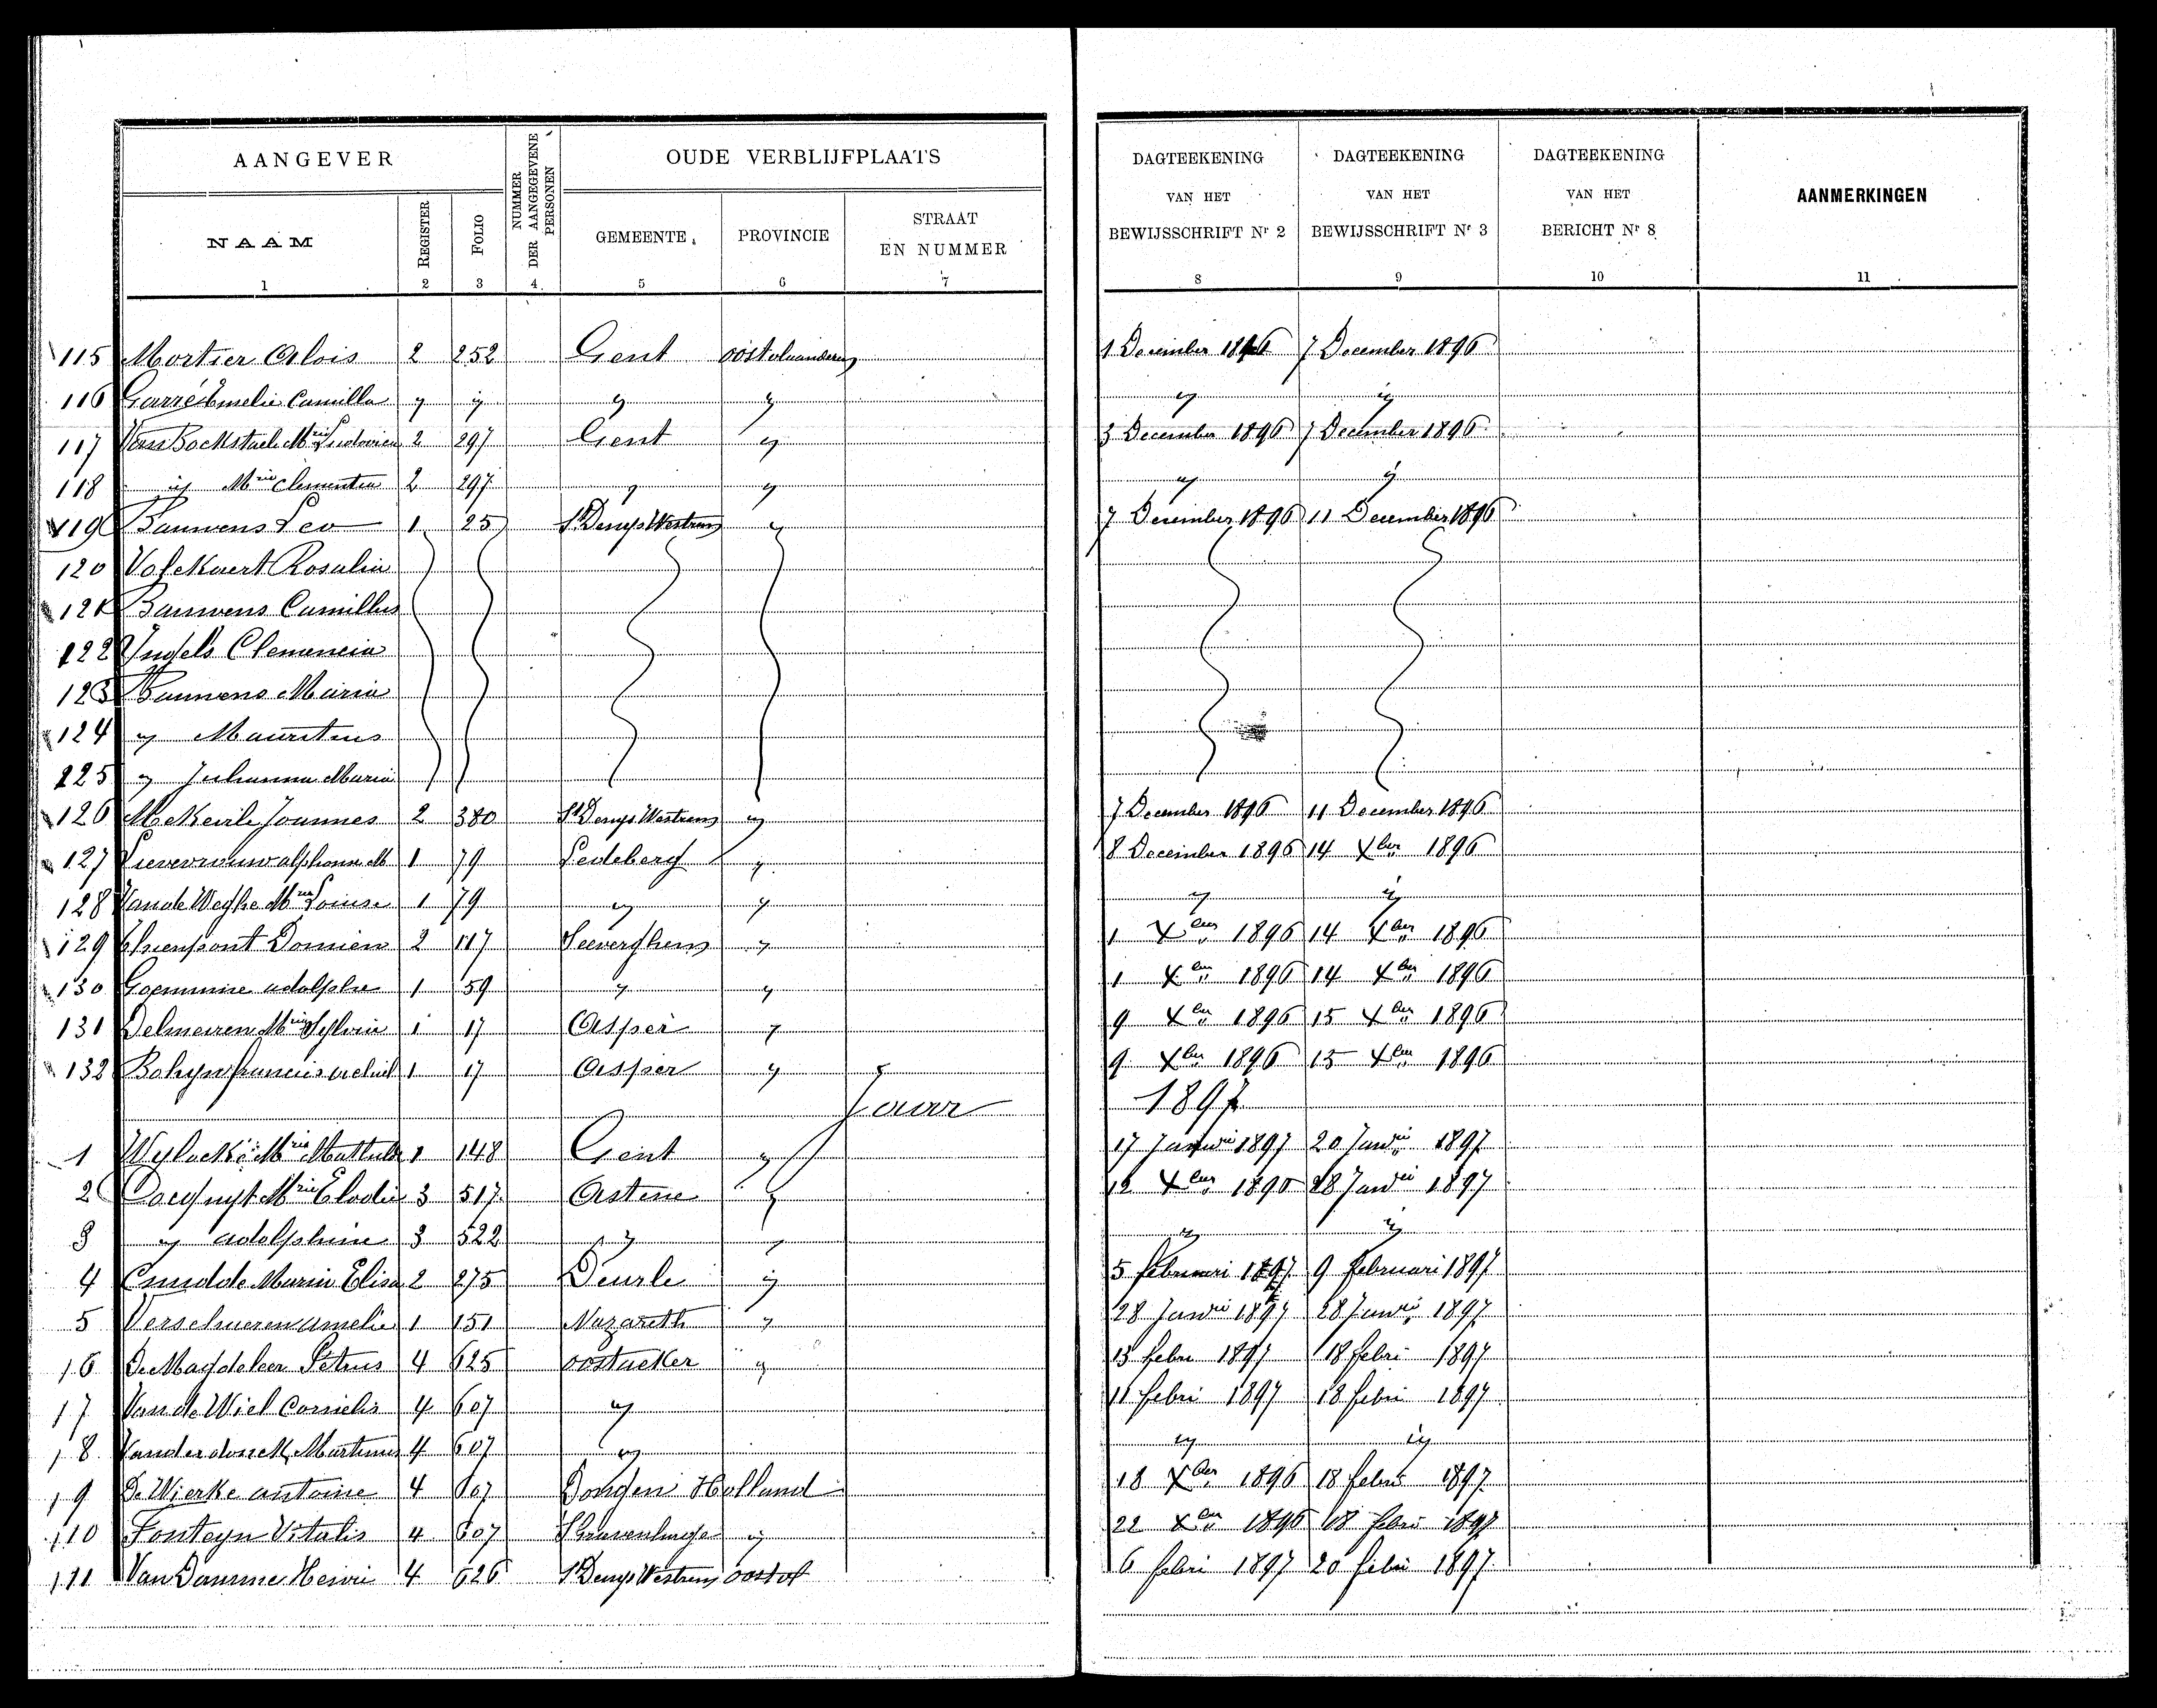 AANGEVER
NUMMER DER AANGEGEVENE PERSONEN
OUDE VERBLIJFPLAATS
NAAM REGISTER FOLIO GEMEENTE PROVINCIE STRAAT EN NUMMER
1 2 3 4 5 6 7
DAGTEEKENING VAN HET BEWIJSSCHRIFT Nr 2
DAGTEEKENING VAN HET BEWIJSSCHRIFT Nr 3
DAGTEEKENING VAN HET BERICHT Nr 8
AANMERKINGEN
8 9 10 11
115 Mortier Alois 2 252 Gent 1 December 1896 7 December 1896
116 Garré Emelie Camilla y y y y y y
117 Van Bockstaele Mrie Ludovica 2 297 Gent y 3 December 1896 7 December 1896
118 y Mrie Clementia 2 297 y y y y
119 Bauwens Leo 1 25 St Denys Westrem y 7 December 1896 11 December 1896
120 Volckaert Rosalia
121 Bauwens Camillus
122 Ingels Clemencia
123 Bauwens Maria
124 y Mauritius
125 y Juhanna Maria
126 Joannes 2 380 St Denys Westrem y 7 December 1896 11 December 1896
127 Lievevrouw alphonse M 1 79 Ledeberg y 8 December 1896 14 Xber 1896
128 Van de Weghe Mria Louise 1 79 y y y y
129 Thienpont Damien 2 117 Seeverghem y 1 Xber 1896 14 Xber 1896
130 Goeminne adolphe 1 59 y y 1 Xber 1896 14 Xber 1896
131 Delmeiren Mrie Sylvia 1 17 Asper y 9 Xber 1896 15 Xber 1896
132 Bohyn 1 17 Asper y 9 Xber 1896 15 Xber 1896
Jaar 1897
1 Mrie Mathilde 1 148 Gent y 17 Januarii 1897 20 Janrii 1897
2 Mrie Elodie 3 517 Astene y 12 Xber 28 Janrii 1897
3 y adolphine 3 522 y y y y
4 Cnudde Maria Elisa 2 275 Deurle y 5 februari 1897 9 februari 1897
5 Verschueren amelie 1 151 Nazareth y 28 Janrii 1897 28 Janrii 1897
6 De Maydeleer Petrus 4 625 oostacker y 13 febri 1897 18 febri 1897
7 Van de Wiel Cornelis 4 607 y 11 febri 1897 18 febri 1897
8 Vanderdonck Martinus 4 607 y y y
9 De Wierke antoine 4 607 Dongen Holland 18 Xber 1896 18 febri 1897
10 Fonteyn Vitalis 4 607 y 22 Xber 1896 18 febri 1897
11 Van Damme Henri 4 626 St Denys Westrem oostvl 6 febri 1897 20 febri 1897